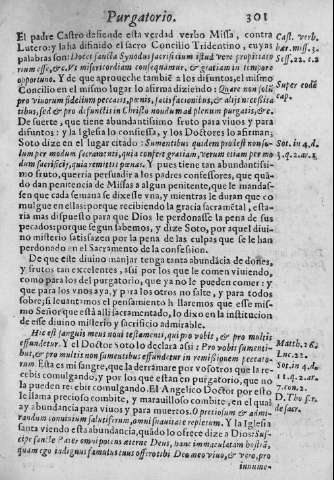 Purgatorio. 301
El padre Castro defiende esta verdad verbo Missa, contra
Lutero: y la ha difinido el sacro Concilio Tridentino, cuyas
palabras son: Docet sancta Synodus sacrificium istud vere propitiato
rium esse, &c. Vt misericordiam consequamur, & gratiam in tempore
oportuno. Y de que aproueche tambiē a los difuntos, el mismo
Concilio en el mismo lugar lo afirma diziendo: Quare non solū
pro viuorum fidelium peccatis, pœnis, satisfactionibus, & alijs necessita
tibus, sed & pro defunctis in Christo nondum ad plenum purgatis, &c.
De suerte, que tiene abundantissimo fruto para viuos y para
difuntos: y la Iglesia lo confiessa, y los Doctores lo afirman;
Soto dize en el lugar citado: Sumentibus quidem prodest non so-
lum per modum sacramenti, quia confert gratiam, verum etiam per mo
dum sacrificij, quia remittit pœnas. Y pues tiene tan abundantissi-
mo fruto, querria persuadir a los padres confessores, que quā-
do dan penitencia de Missas a algun penitente, que le mandas-
sen que cada semana se dixesse vna, y mientras le duran que co
mulgue en ellas: porque recibiendo la gracia sacramētal, esta-
ria mas dispuesto para que Dios le perdonasse la pena de sus
pecados: porque segun sabemos, y dize Soto, por aquel diui-
no misterio satisfazen por la pena de las culpas que se le han
perdonado en el Sacramento de la confession.
De que este diuino manjar tenga tanta abundācia de doñes,
y frutos tan excelentes, assi por los que le comen viuiendo,
como para los del purgatorio, que ya no le pueden comer: y
que para los vnos aya, y para los otros no falte, y para todos
sobre; si leuantamos el pensamiento hallaremos que esse mis-
mo Señor que está alli sacramentado, lo dixo en la institucion
de esse diuino misterio y sacrificio admirable.
Hic est sanguis meus noui testamenti, qui pro vobis, & pro multis
effundetur. Y el Doctor Soto lo declara assi: Pro vobis sumenti-
bus, & pro multis non sumentibus effundetur in remissionem peccato-
rum. Esta es mi sangre, que la derràmare por vosotros que la re-
cebis comulgando, y por los que estan en purgatorio, que no
la pueden recebir comulgando. El Angelico Doctor por esto
le llama precioso combite, y marauilloso combite, en el qual
ay abundancia para viuos y para muertos. O pretiosum & admi-
randum conuiuium salutiferum, omni suauitate repletum. Y la Iglesia
santa viendo esta abundancia, quādo lo ofrece dize a Dios: Sus-
cipe sancte Pater omnipotens æterne Deus, hanc immaculatam hostiā,
quam ego indignus famulus tuus offero tibi Deo meo viuo, & vero, pro
innume-
Cast. verb.
har. miss. 3.
Sess. 22. c. 2
Super eodē
cap.
Sot. in 4. d.
Matth. 26.
Luc. 22.
Sot. in 4. d.
7. con. 2.
D. Tho. 
de sacr.